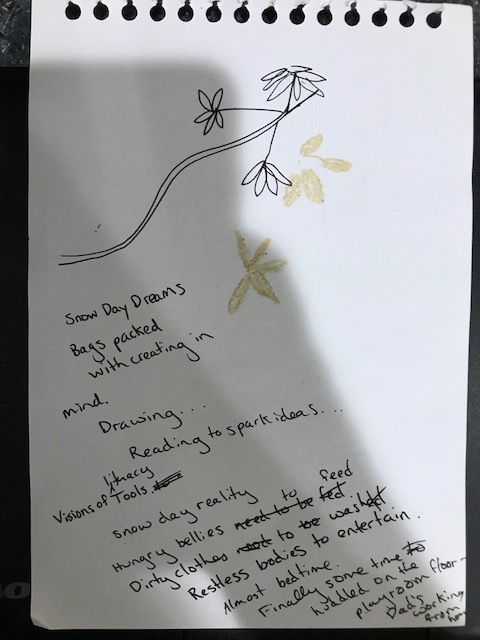 Snow Day Dreams
Bags packed
with creating in
mind.
Drawing...
Reading to spark ideas...
literacy
Visions of Tools
snow day reality
feed
Hungry bellies need to be fed to
Dirty clothes need to be washed
Restless bodies to entertain.
Almost bedtime.
Finally some time to
huddled on the floor-
playroom
Dad's
working
from